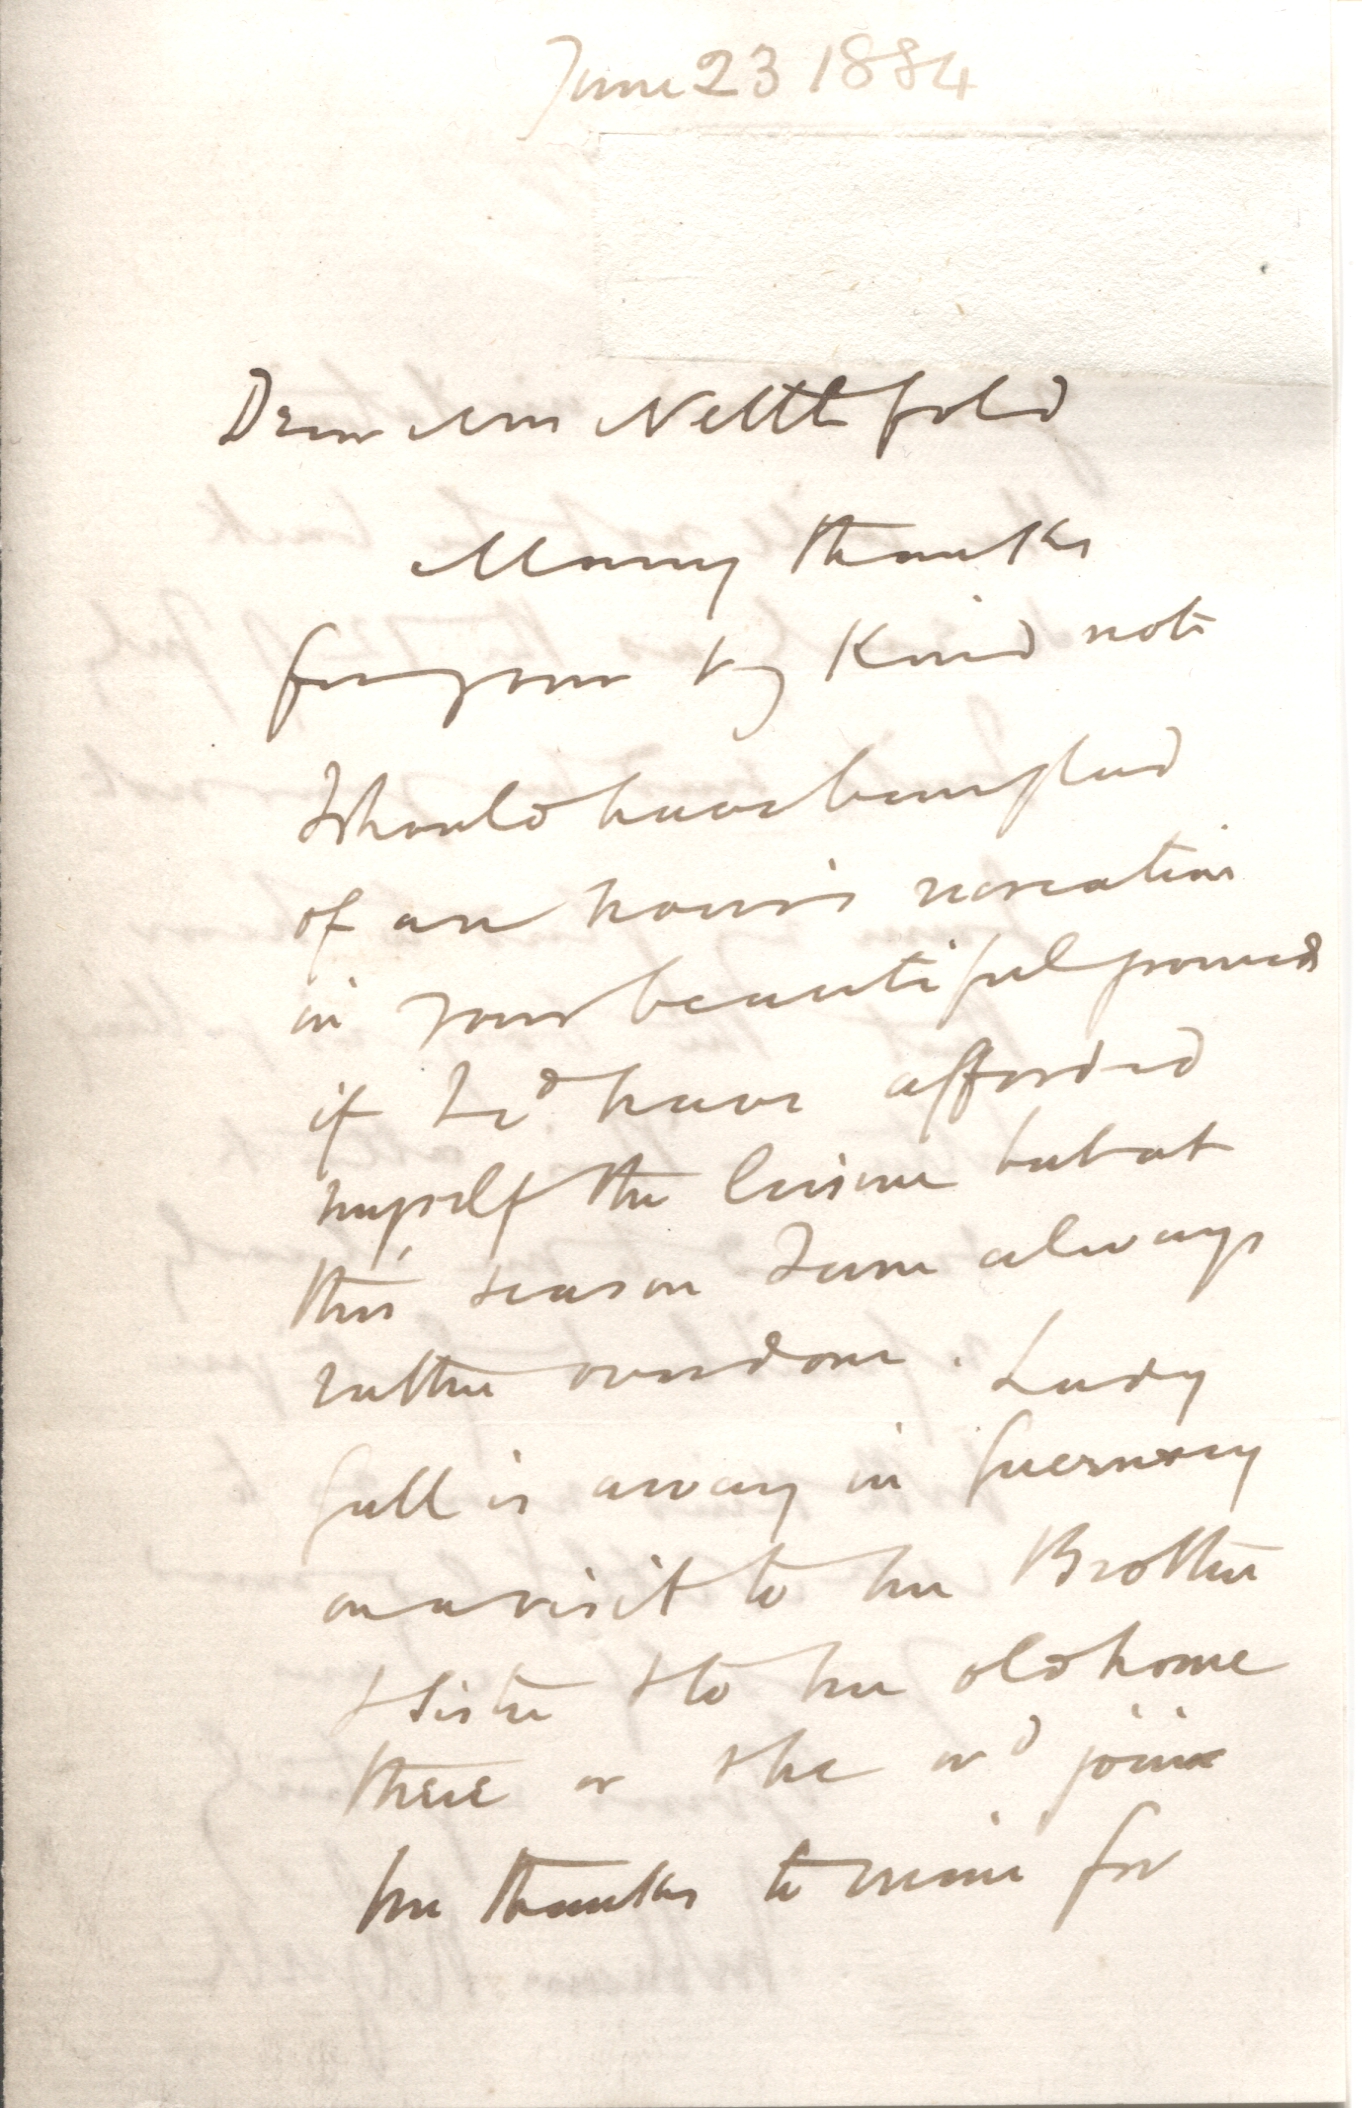 June 23 1884
Dear Mrs Nettlefold
Many thanks
for your vy kind note
I should have been glad
of an hour's recreation
in your beautiful grounds
if I cd have afforded
myself the leisure but at
this season I am always
rather overdone. Lady
Gull is away in Guernsey
on a visit to her Brother
& Sister & to her old home
there or she wd join
her thanks to mine for